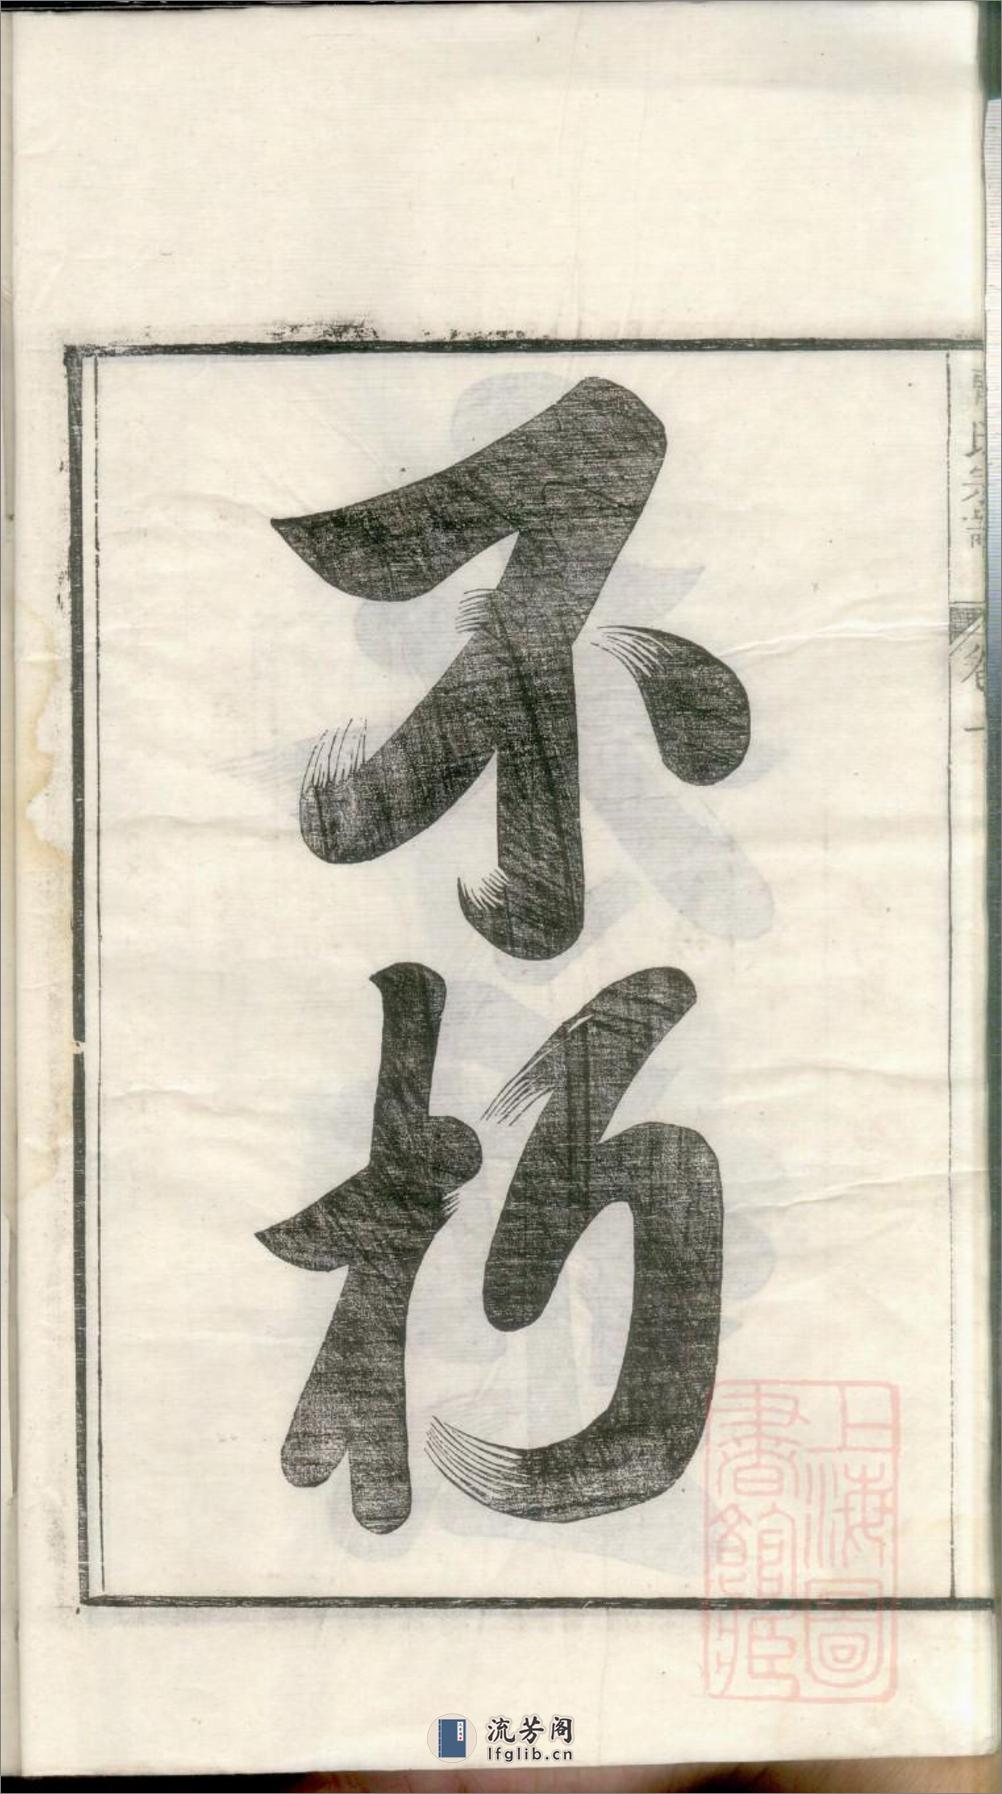 不朽
氏宗譜
卷一
上海圖
書館藏
流芳阁
lfglib.cn